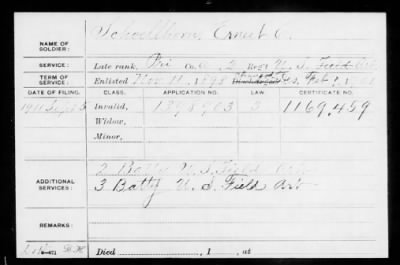 NAME OF SOLDIER: Schoellhorn, Ernest C.
SERVICE: Late rank, Pri Co. 2 Reg't U.S. Field Art.
TERM OF SERVICE: Enlisted Nov. 11, 1898 Discharged Feb. 1, 1901
DATE OF FILING. CLASS. APPLICATION NO. CERTIFICATE NO.
1911 Sept 5 Invalid, 1398903 3 1169,459
Widow,
Minor,
ADDITIONAL SERVICES: 2 Batty U.S. Field Art
3 Batty U.S. Field Art
REMARKS:
Died , 1 , at